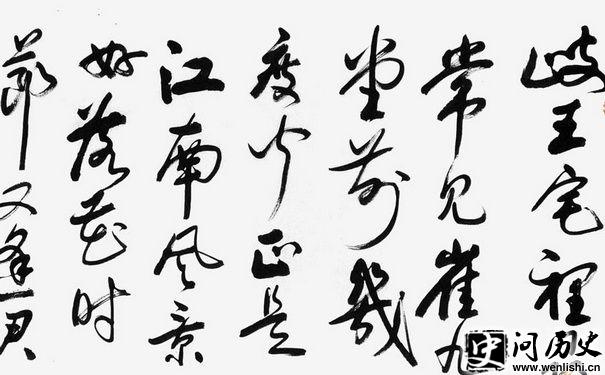 岐王宅裡
常见崔九
堂前幾
度闻正是
江南风景
好落花时
節又逢君
史问历史
www.wenlishi.cn